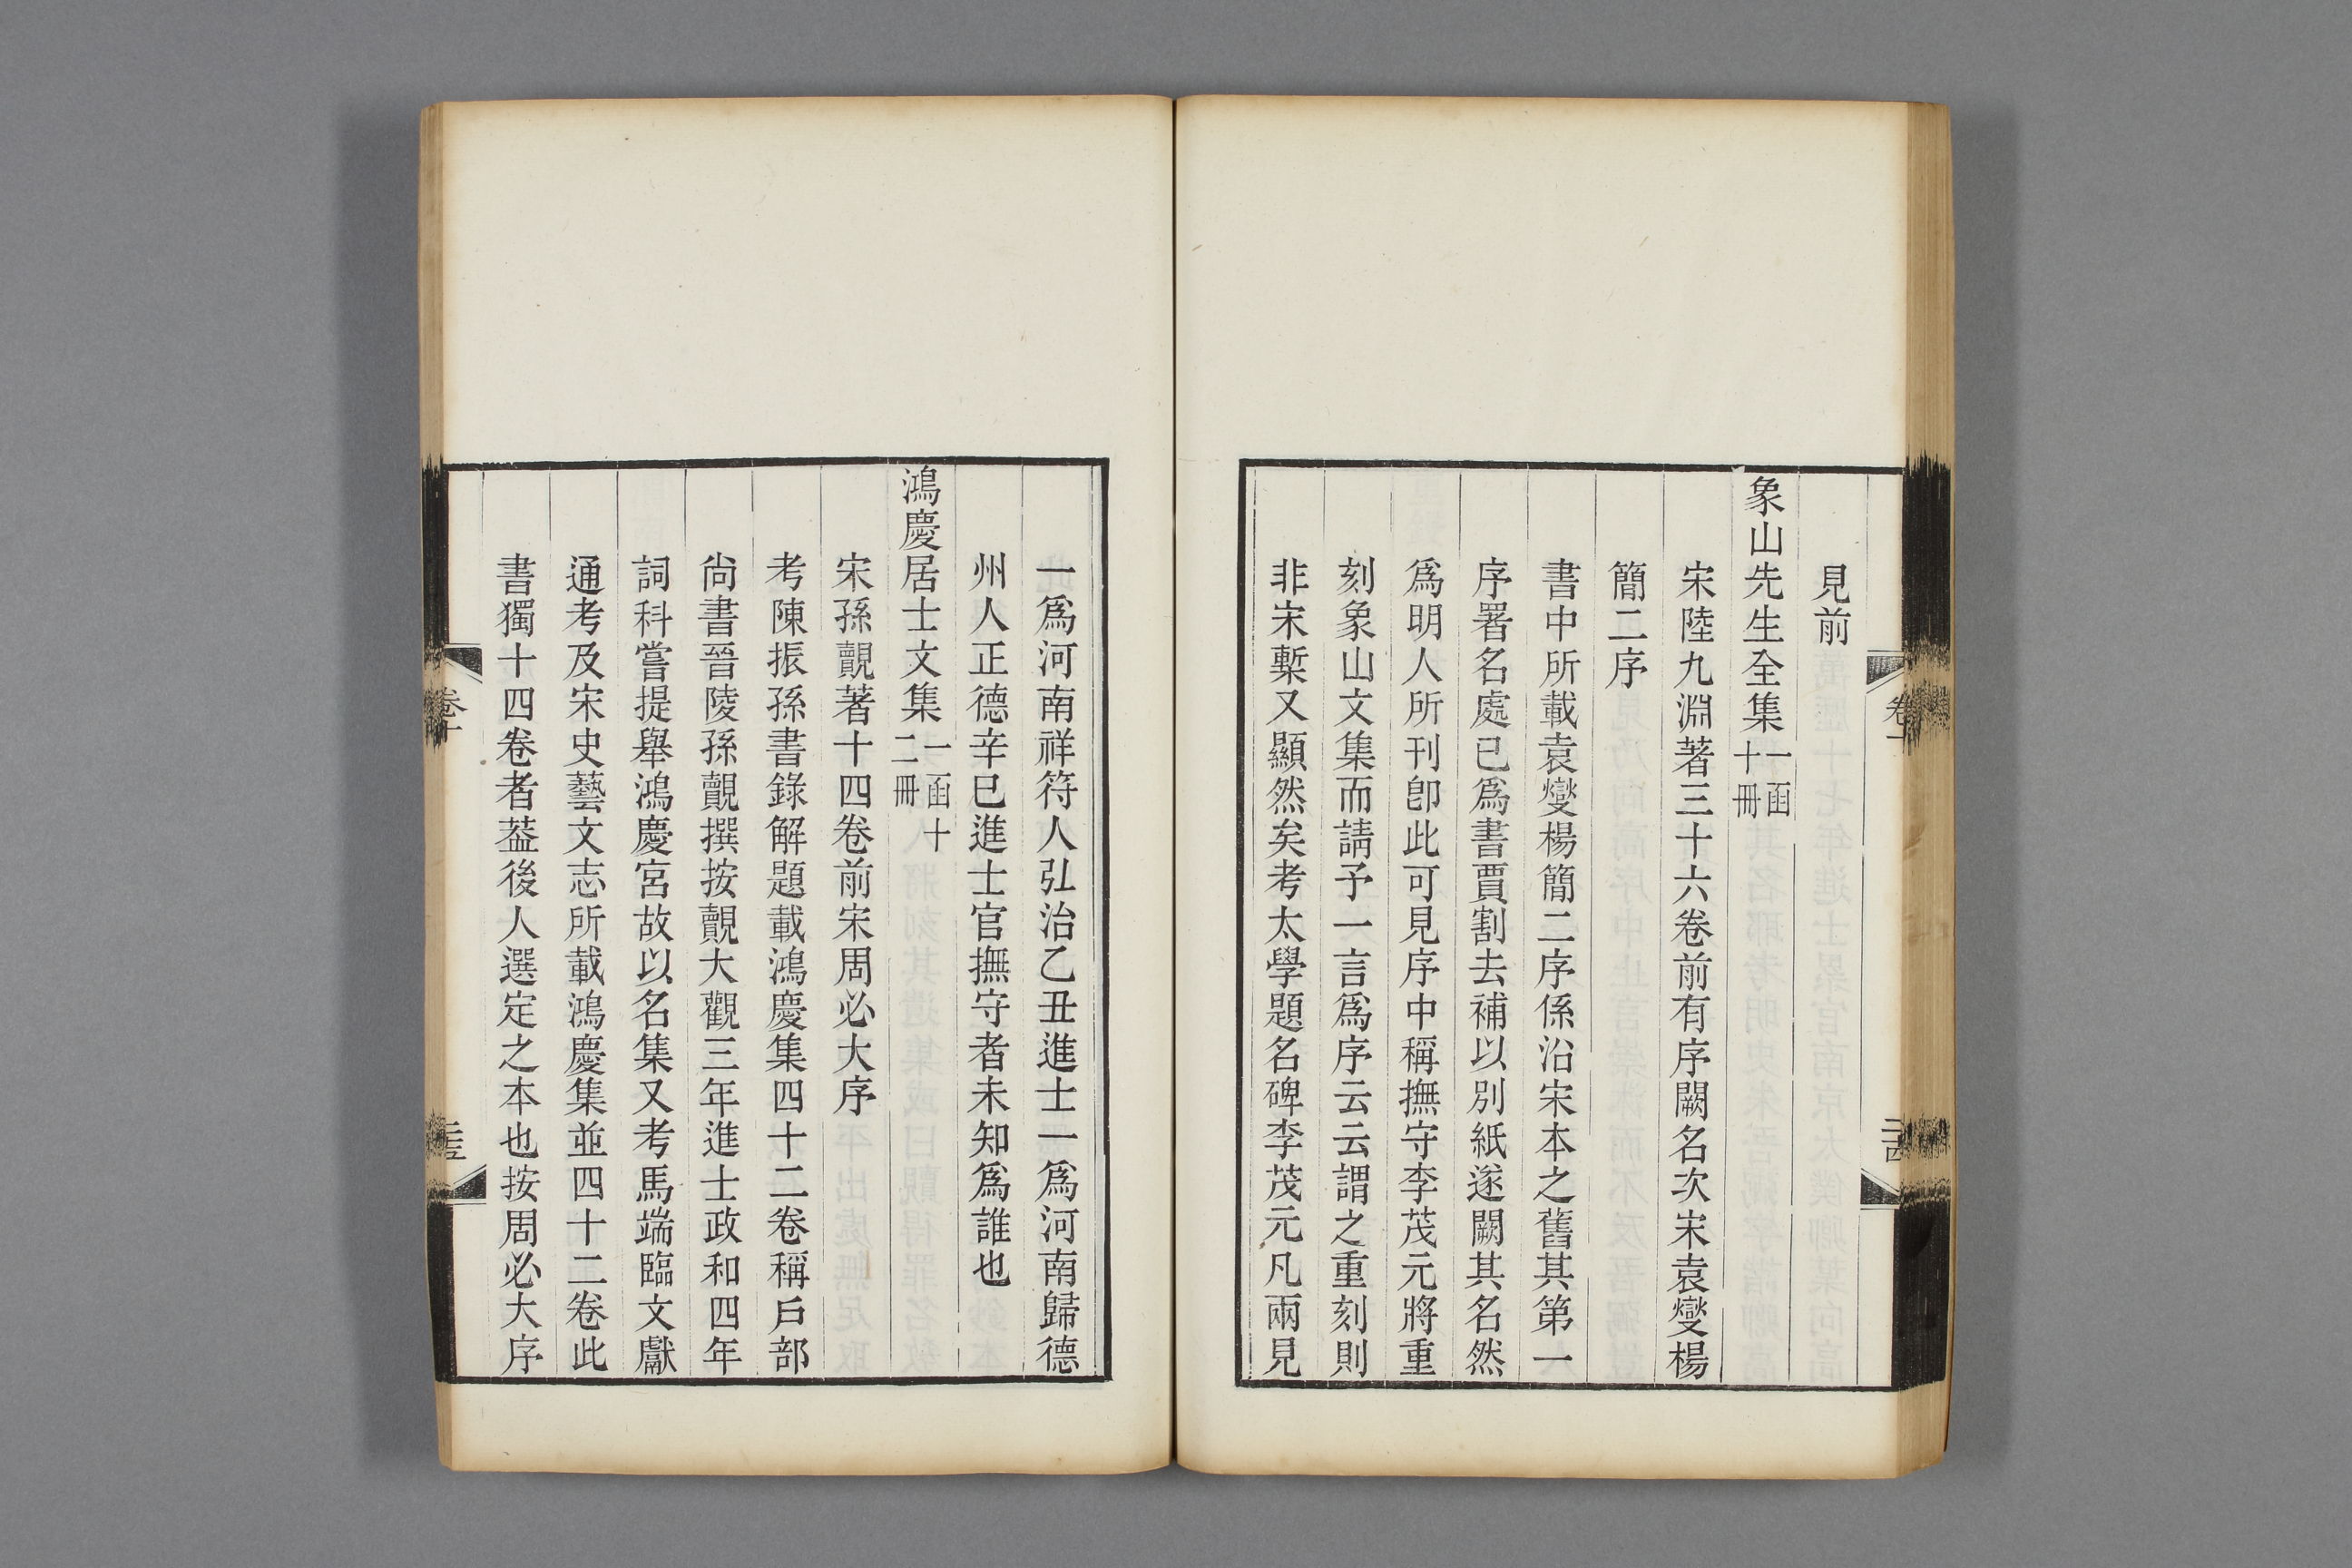 見前
象山先生全集一函十冊
宋陸九淵著三十六卷前有序闕名次宋袁燮楊
簡二序
書中所載袁燮楊簡二序係沿宋本之舊其第一
序署名處已爲書賈割去補以別紙遂闕其名然
爲明人所刊卽此可見序中稱撫守李茂元將重
刻象山文集而請予一言爲序云云謂之重刻則
非宋槧又顯然矣考太學題名碑李茂元凡兩見
一爲河南祥符人弘治乙丑進士一爲河南歸德
州人正德辛巳進士官撫守者未知爲誰也
鴻慶居士文集一函十二冊
宋孫覿著十四卷前宋周必大序
考陳振孫書錄解題載鴻慶集四十二卷稱戶部
尙書晉陵孫覿撰按覿大觀三年進士政和四年
詞科嘗提舉鴻慶宮故以名集又考馬端臨文獻
通考及宋史藝文志所載鴻慶集並四十二卷此
書獨十四卷者葢後人選定之本也按周必大序